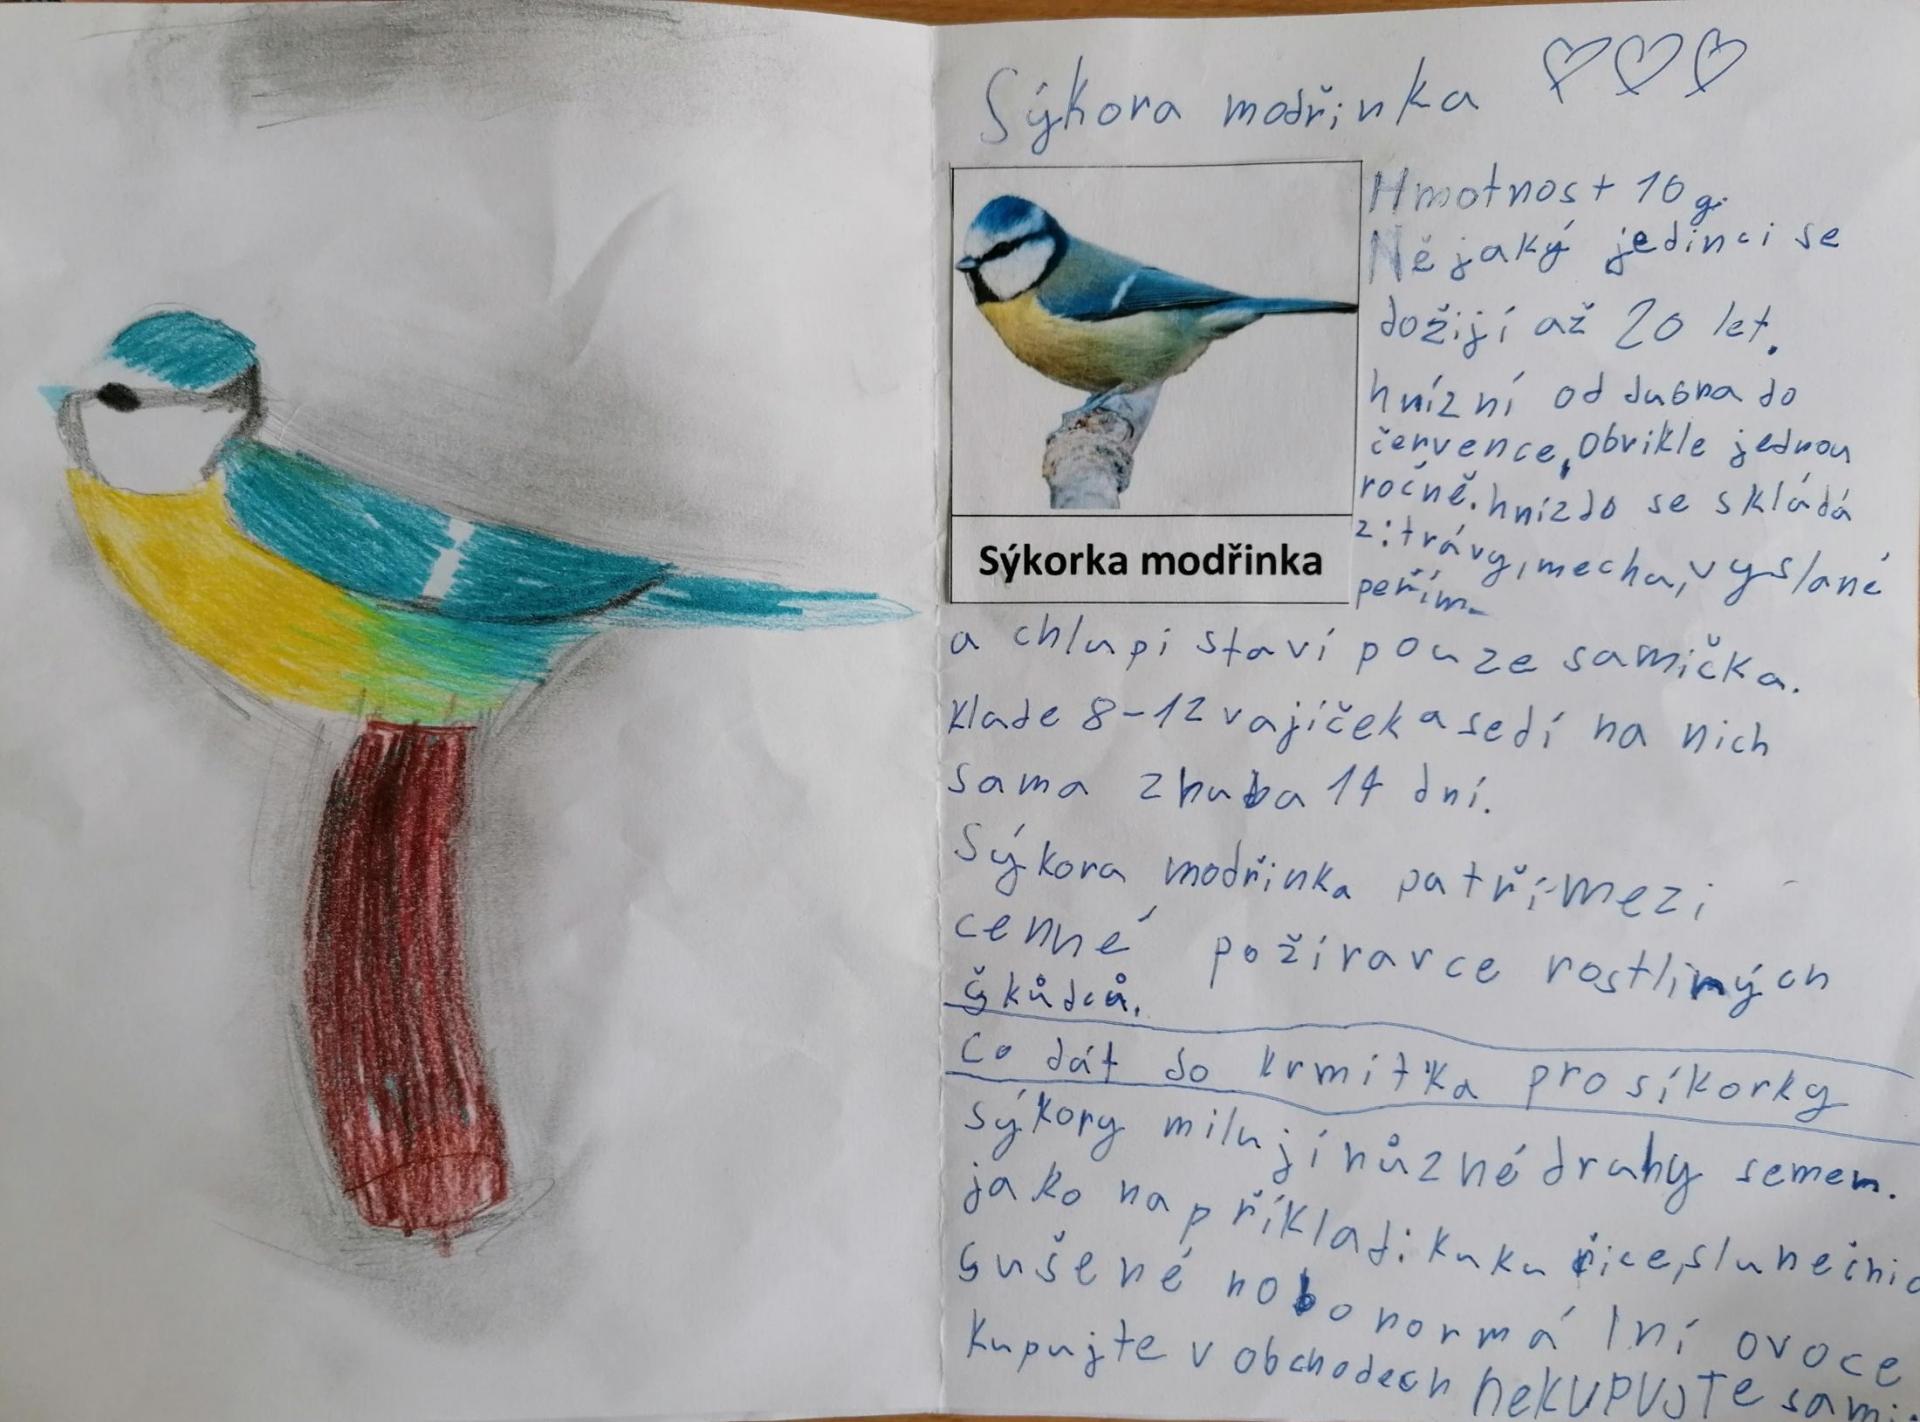 Sýkora modřinka
Hmotnost 10 g.
Nějaký jedinci se
dožijí až 20 let.
hnízní od dubna do
července, obvikle jednou
ročně. hnízdo se skládá
z: trávy, mecha, vyslané
peřím
Sýkorka modřinka
a chlupi staví pouze samička.
klade 8-12 vajíček a sedí na nich
sama zhuba 14 dní.
Sýkora modřinka patří mezi
cenné požíravce rostliných
škůdců.
Co dát do krmítka pro síkorky
sýkory milují různé druhy semen.
jako například: kukuřice, slunečnic
sušené nobo normální ovoce
kupujte v obchodech neKUPUJTE sami